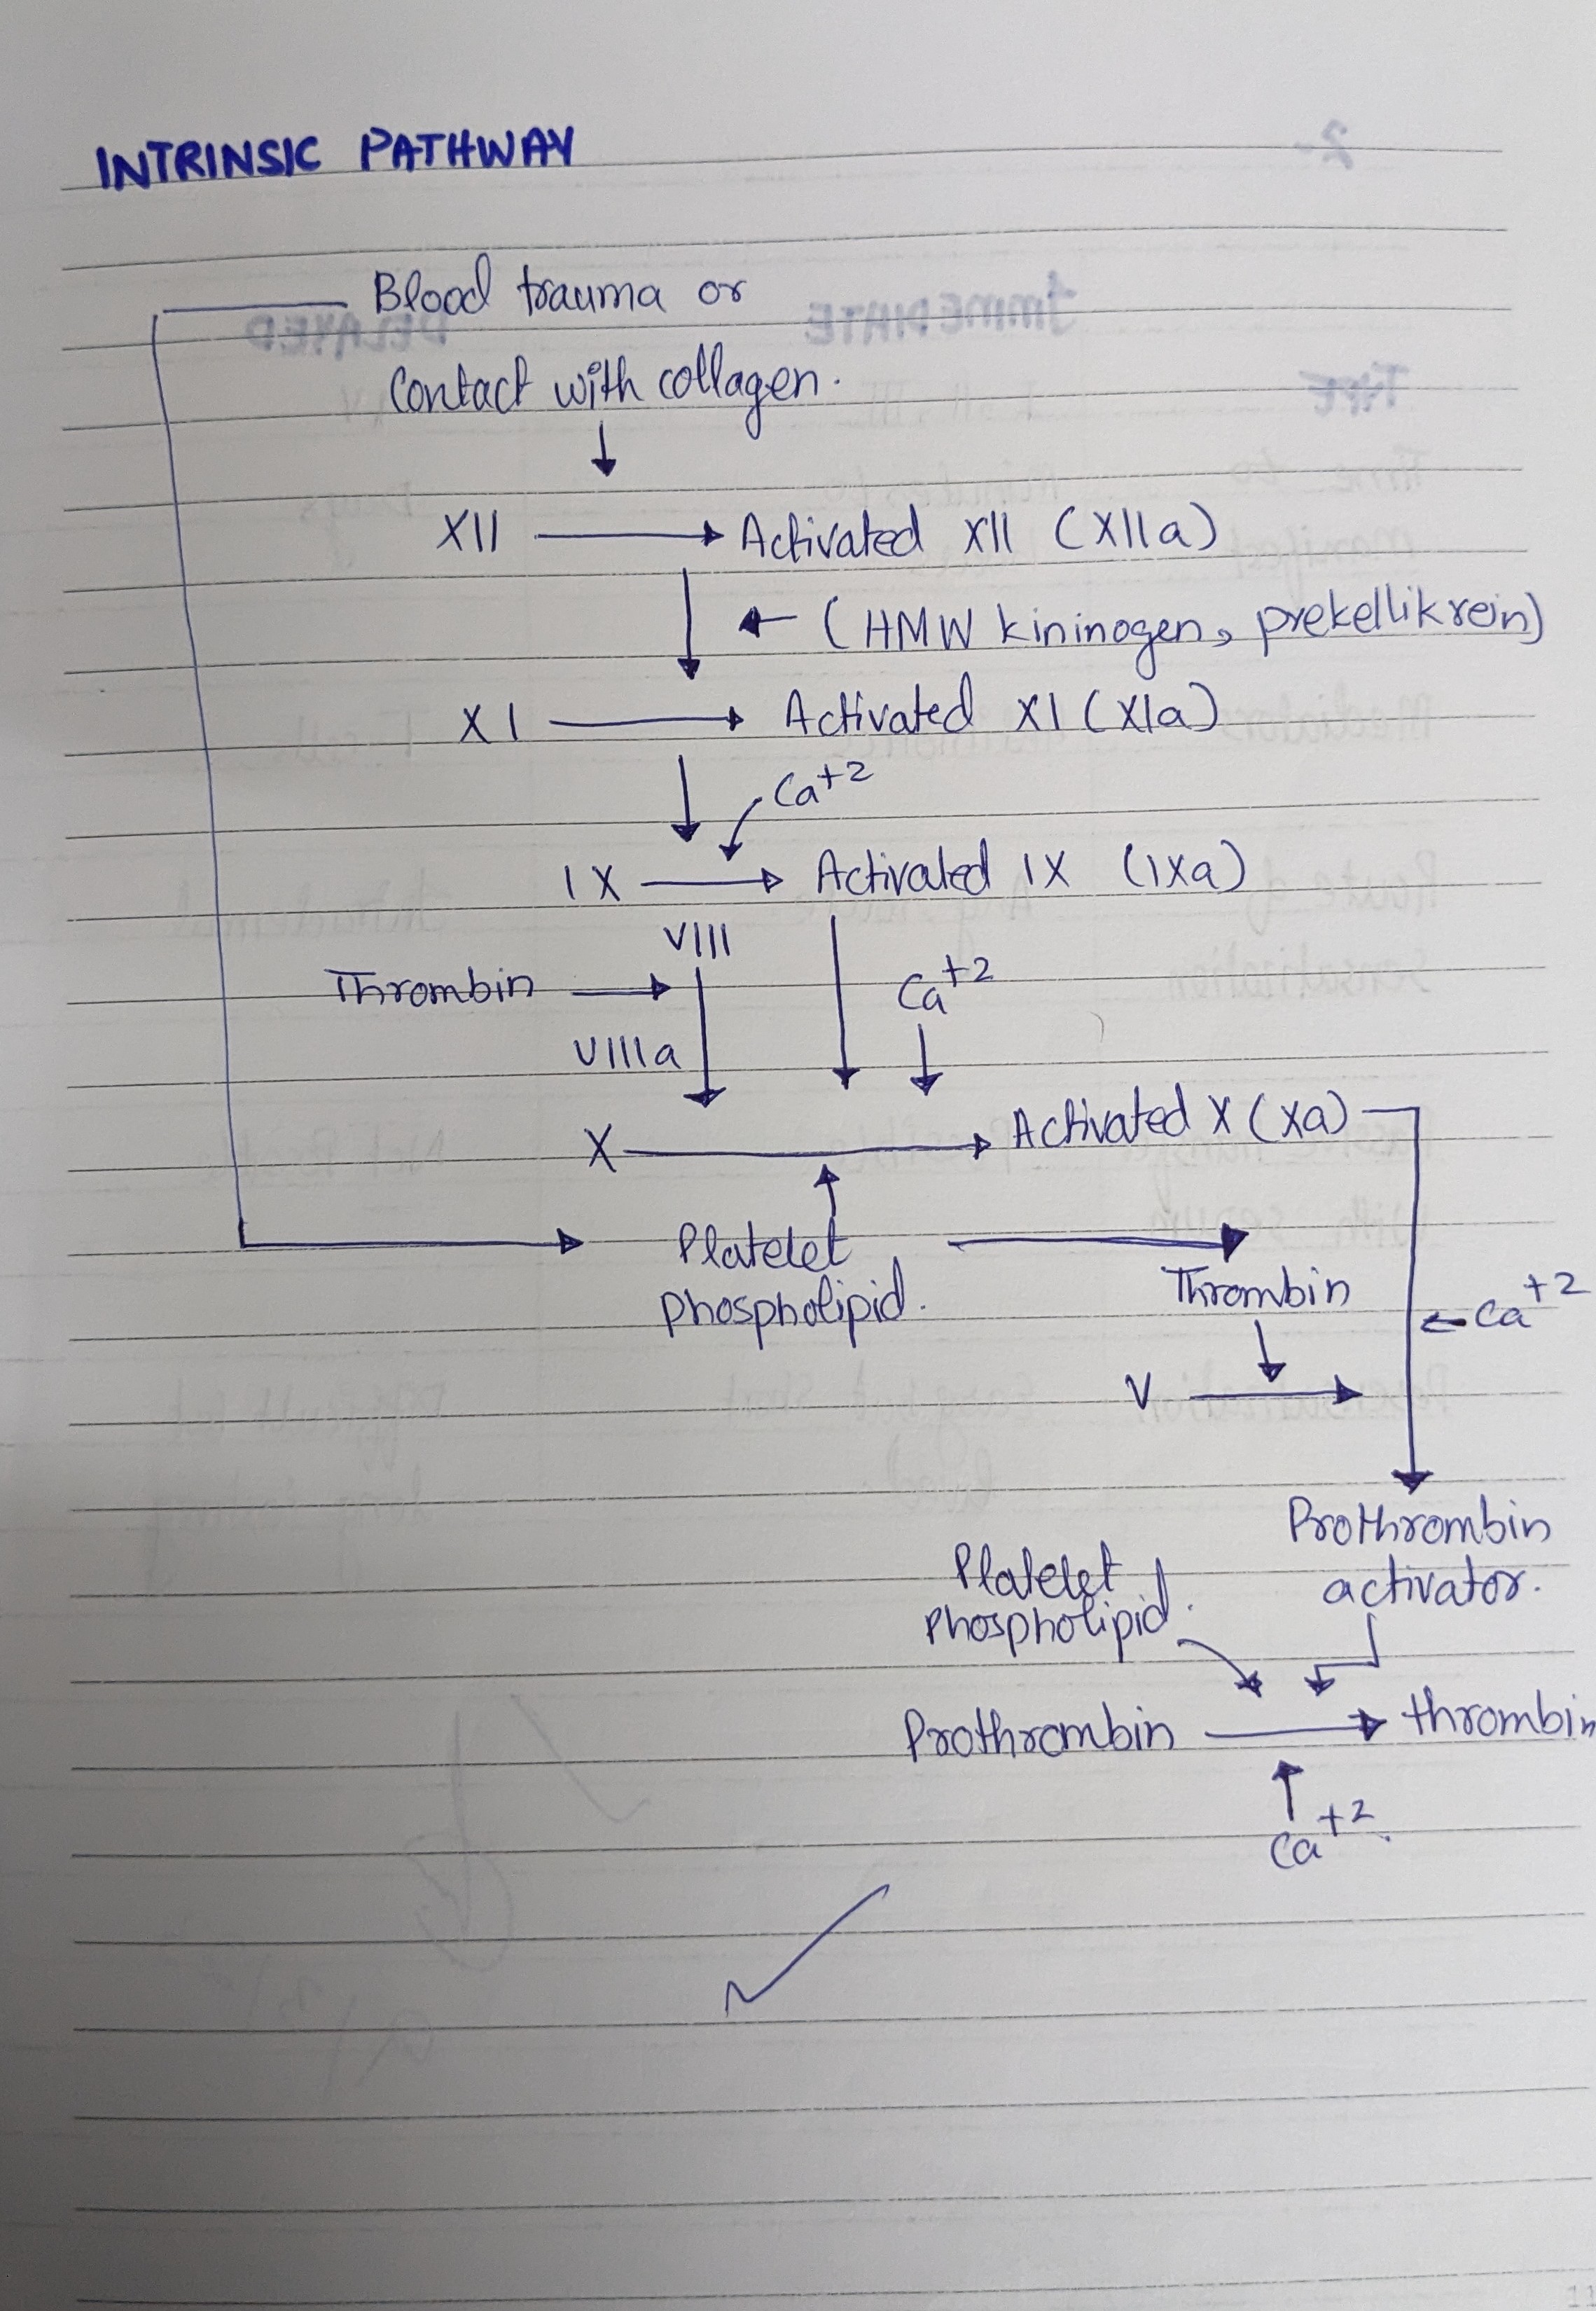 INTRINSIC PATHWAY
Blood trauma or
Contact with collagen.
XII → Activated XII (XIIa)
← (HMW kininogen, prekellikrein)
XI → Activated XI (XIa)
Ca+2
IX → Activated IX (IXa)
VIII
Thrombin →
Ca+2
VIIIa
X → Activated X (Xa)
Platelet
phospholipid.
Thrombin
← Ca+2
V →
Prothrombin
activator.
Platelet
Phospholipid.
Prothrombin → thrombin
Ca+2.